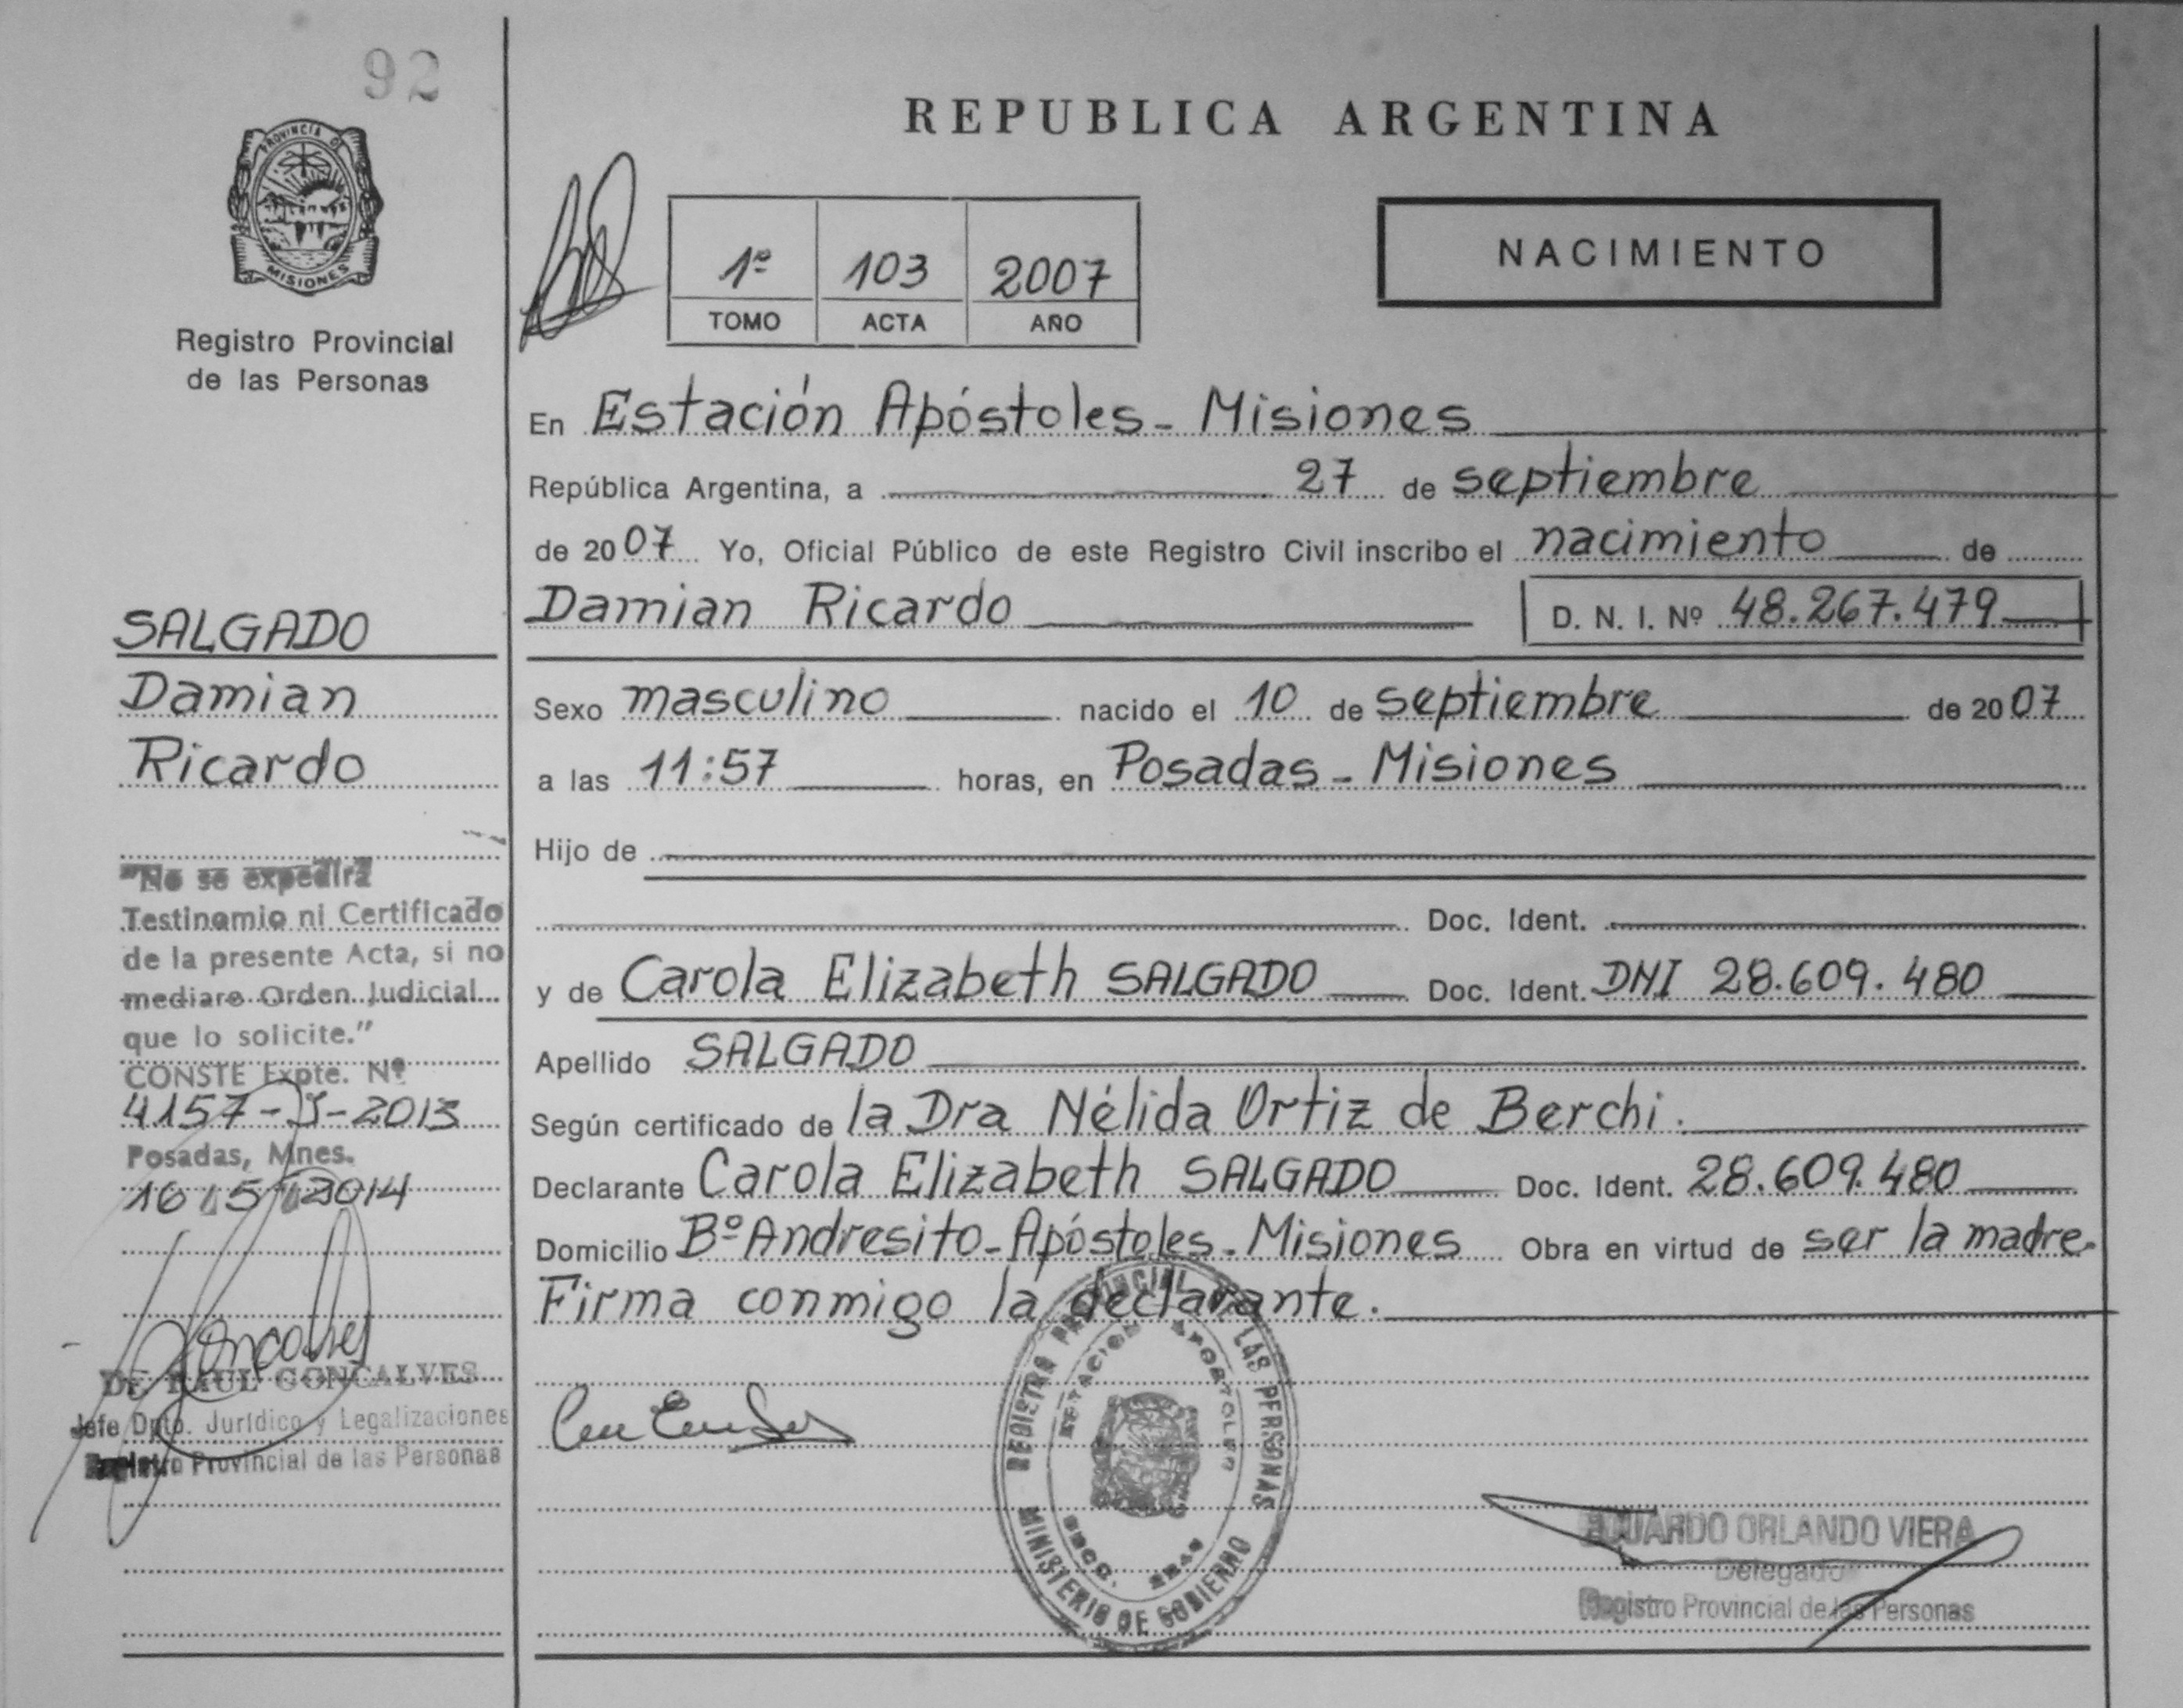 92
PROVINCIA DE
MISIONES
Registro Provincial
de las Personas
SALGADO
Damian
Ricardo
"No se expedirá
Testinomio ni Certificado
de la presente Acta, si no
mediare Orden Judicial
que lo solicite."
CONSTE Expte. Nº
4157-S-2013
Posadas, Mnes.
16 5 2014
Dr. RAUL GONCALVES
Jefe Dpto. Jurídico y Legalizaciones
Registro Provincial de las Personas
REPUBLICA ARGENTINA
1º 103 2007
TOMO ACTA AÑO
NACIMIENTO
En Estación Apóstoles - Misiones
República Argentina, a 27 de septiembre
de 2007 Yo, Oficial Público de este Registro Civil inscribo el nacimiento de
Damian Ricardo D. N. I. Nº 48.267.479
Sexo masculino nacido el 10 de septiembre de 2007
a las 11:57 horas, en Posadas - Misiones
Hijo de
Doc. Ident.
y de Carola Elizabeth SALGADO Doc. Ident. DNI 28.609.480
Apellido SALGADO
Según certificado de la Dra Nélida Ortiz de Berchi.
Declarante Carola Elizabeth SALGADO Doc. Ident. 28.609.480
Domicilio Bº Andresito - Apóstoles - Misiones Obra en virtud de ser la madre.
Firma conmigo la declarante.
REGISTRO PROVINCIAL DE LAS PERSONAS
MINISTERIO DE GOBIERNO
ESTACION APOSTOLES
EDUARDO ORLANDO VIERA
Delegado
Registro Provincial de las Personas